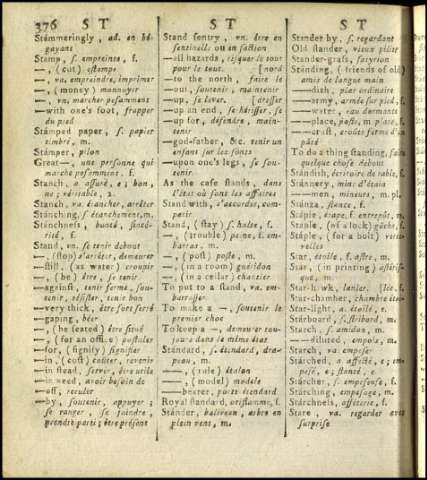 376 S T
S T
S T
Stámmeringly, ad. en bé-
gayant
Stamp, s. empreinte, f.
—, (cut) estampe
—, va. empreindre, imprimer
—, (money) monnoyer
—, vn. marcher pesamment
—with one's foot, frapper
du pied
Stámped paper, s. papier
timbré, m.
Stámper, pilon
Great—, une personne qui
marche pesamment, f.
Stanch, a. assuré, e; bon,
ne; véritable, 2.
Stanch, va. étancher, arrêter
Stánching, s. étanchement, m.
Stánchness, bonté, sincé-
rité, f.
Stand, vn. se tenir debout
—, (stop) s'arrêter, demeurer
—still, (as water) croupir
—, (be) être, se tenir
—against, tenir ferme, sou-
tenir, résister, tenir bon
—very thick, être fort serré
—gaping, béer
—, (be seated) être situé
—, (for an office) postuler
—for, (signify) signifier
—in, (cost) coûter, revenir
—in stead, servir, être utile
—in need, avoir besoin de
—off, reculer
—by, soutenir, appuyer;
se ranger, se joindre,
prendre parti; être présent
Stand sentry, vn. être en
sentinelle ou en faction
—all hazards, risquer le tout
pour le tout. [nord
—to the north, faire le
—out, soutenir, maintenir
—up, se lever. [dresser
—up an end, se hérisser, se
—up for, défendre, main-
tenir
—god-father, &c. tenir un
enfant sur les fonts
—upon one's legs, se sou-
tenir.
As the case stands, dans
l'état où sont les affaires
Stand with, s'accorder, com-
patir
Stand, (stay) s. halte, f.
—, (trouble) peine, f. em-
barras, m.
—, (post) poste, m.
—, (in a room) guéridon
—, (in a cellar) chantier
To put to a stand, va. em-
barrasser
To make a —, soutenir le
premier choc
To keep a —, demeurer tou-
jours dans le même état
Stándard, s. étendard, dra-
peau, m.
—, (rule) étalon
—, (model) modèle
—bearer, porte-étendard
Royal standard, oriflamme, f.
Stánder, baliveau, arbre en
plein vent, m.
Stander by, s. regardant
Old stander, vieux pilier
Stander-grass, satyrion
Stánding, (friends of old)
amis de longue main
—dish, plat ordinaire
—army, armée sur pied, f.
—water, eau dormante
—place, poste, m. place, f.
To do a thing standing, faire
quelque chose debout
Stándish, écritoire de table, f.
Stánnery, mine d'étain
—men, mineurs, m. pl.
Stánza, stance, f.
Stáple, étape, f. entrepôt, m.
Staple, (of a lock) gâche, f.
Stáple, (for a bolt) verte-
velles
Star, étoile, f. astre, m.
Star, (in printing) astéris-
que, m.
Star-hawk, lanier.
Star-chamber, chambre éto-
Star-light, a. étoilé, e.
Stárboard, s. stribord, m.
Starch, s. amidon, m.
—diluted, empois, m.
Starch, va. empeser
Stárched, a. affecté, e; em-
pesé, e; stancé, e.
Stárcher, s. empeseuse, f.
Stárching, empesage, m.
Stárchness, affeterie, f.
Stare, va. regarder avec
surprise